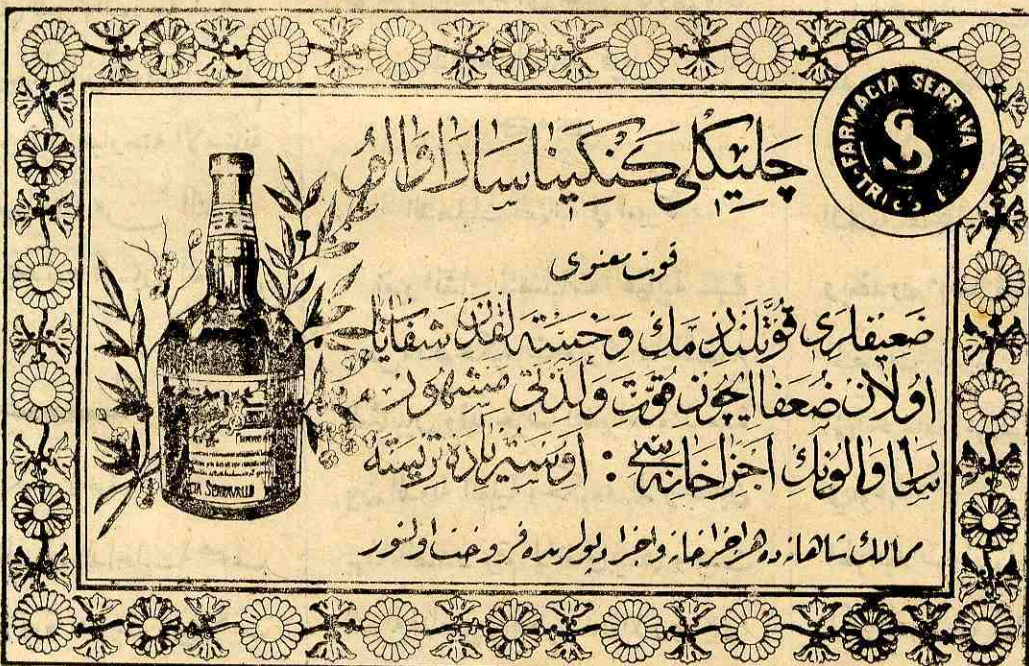 FARMACIA SERRAVA
TRIESTE
چليكلى كنكينا سارا والو
قوت معنوى
ضعيفلرى قوتلنديرمك وخسته لقدن شفاياب
اولان ضعفا ايچون قوت ولذتى مشهور
سارا والونك اجزاخانه سى : اوستريا ده تريسته
ممالك شاهانه ده هر اجزاخانه واجزا ديولرنده فروخت اولنور
SERRAVALLO